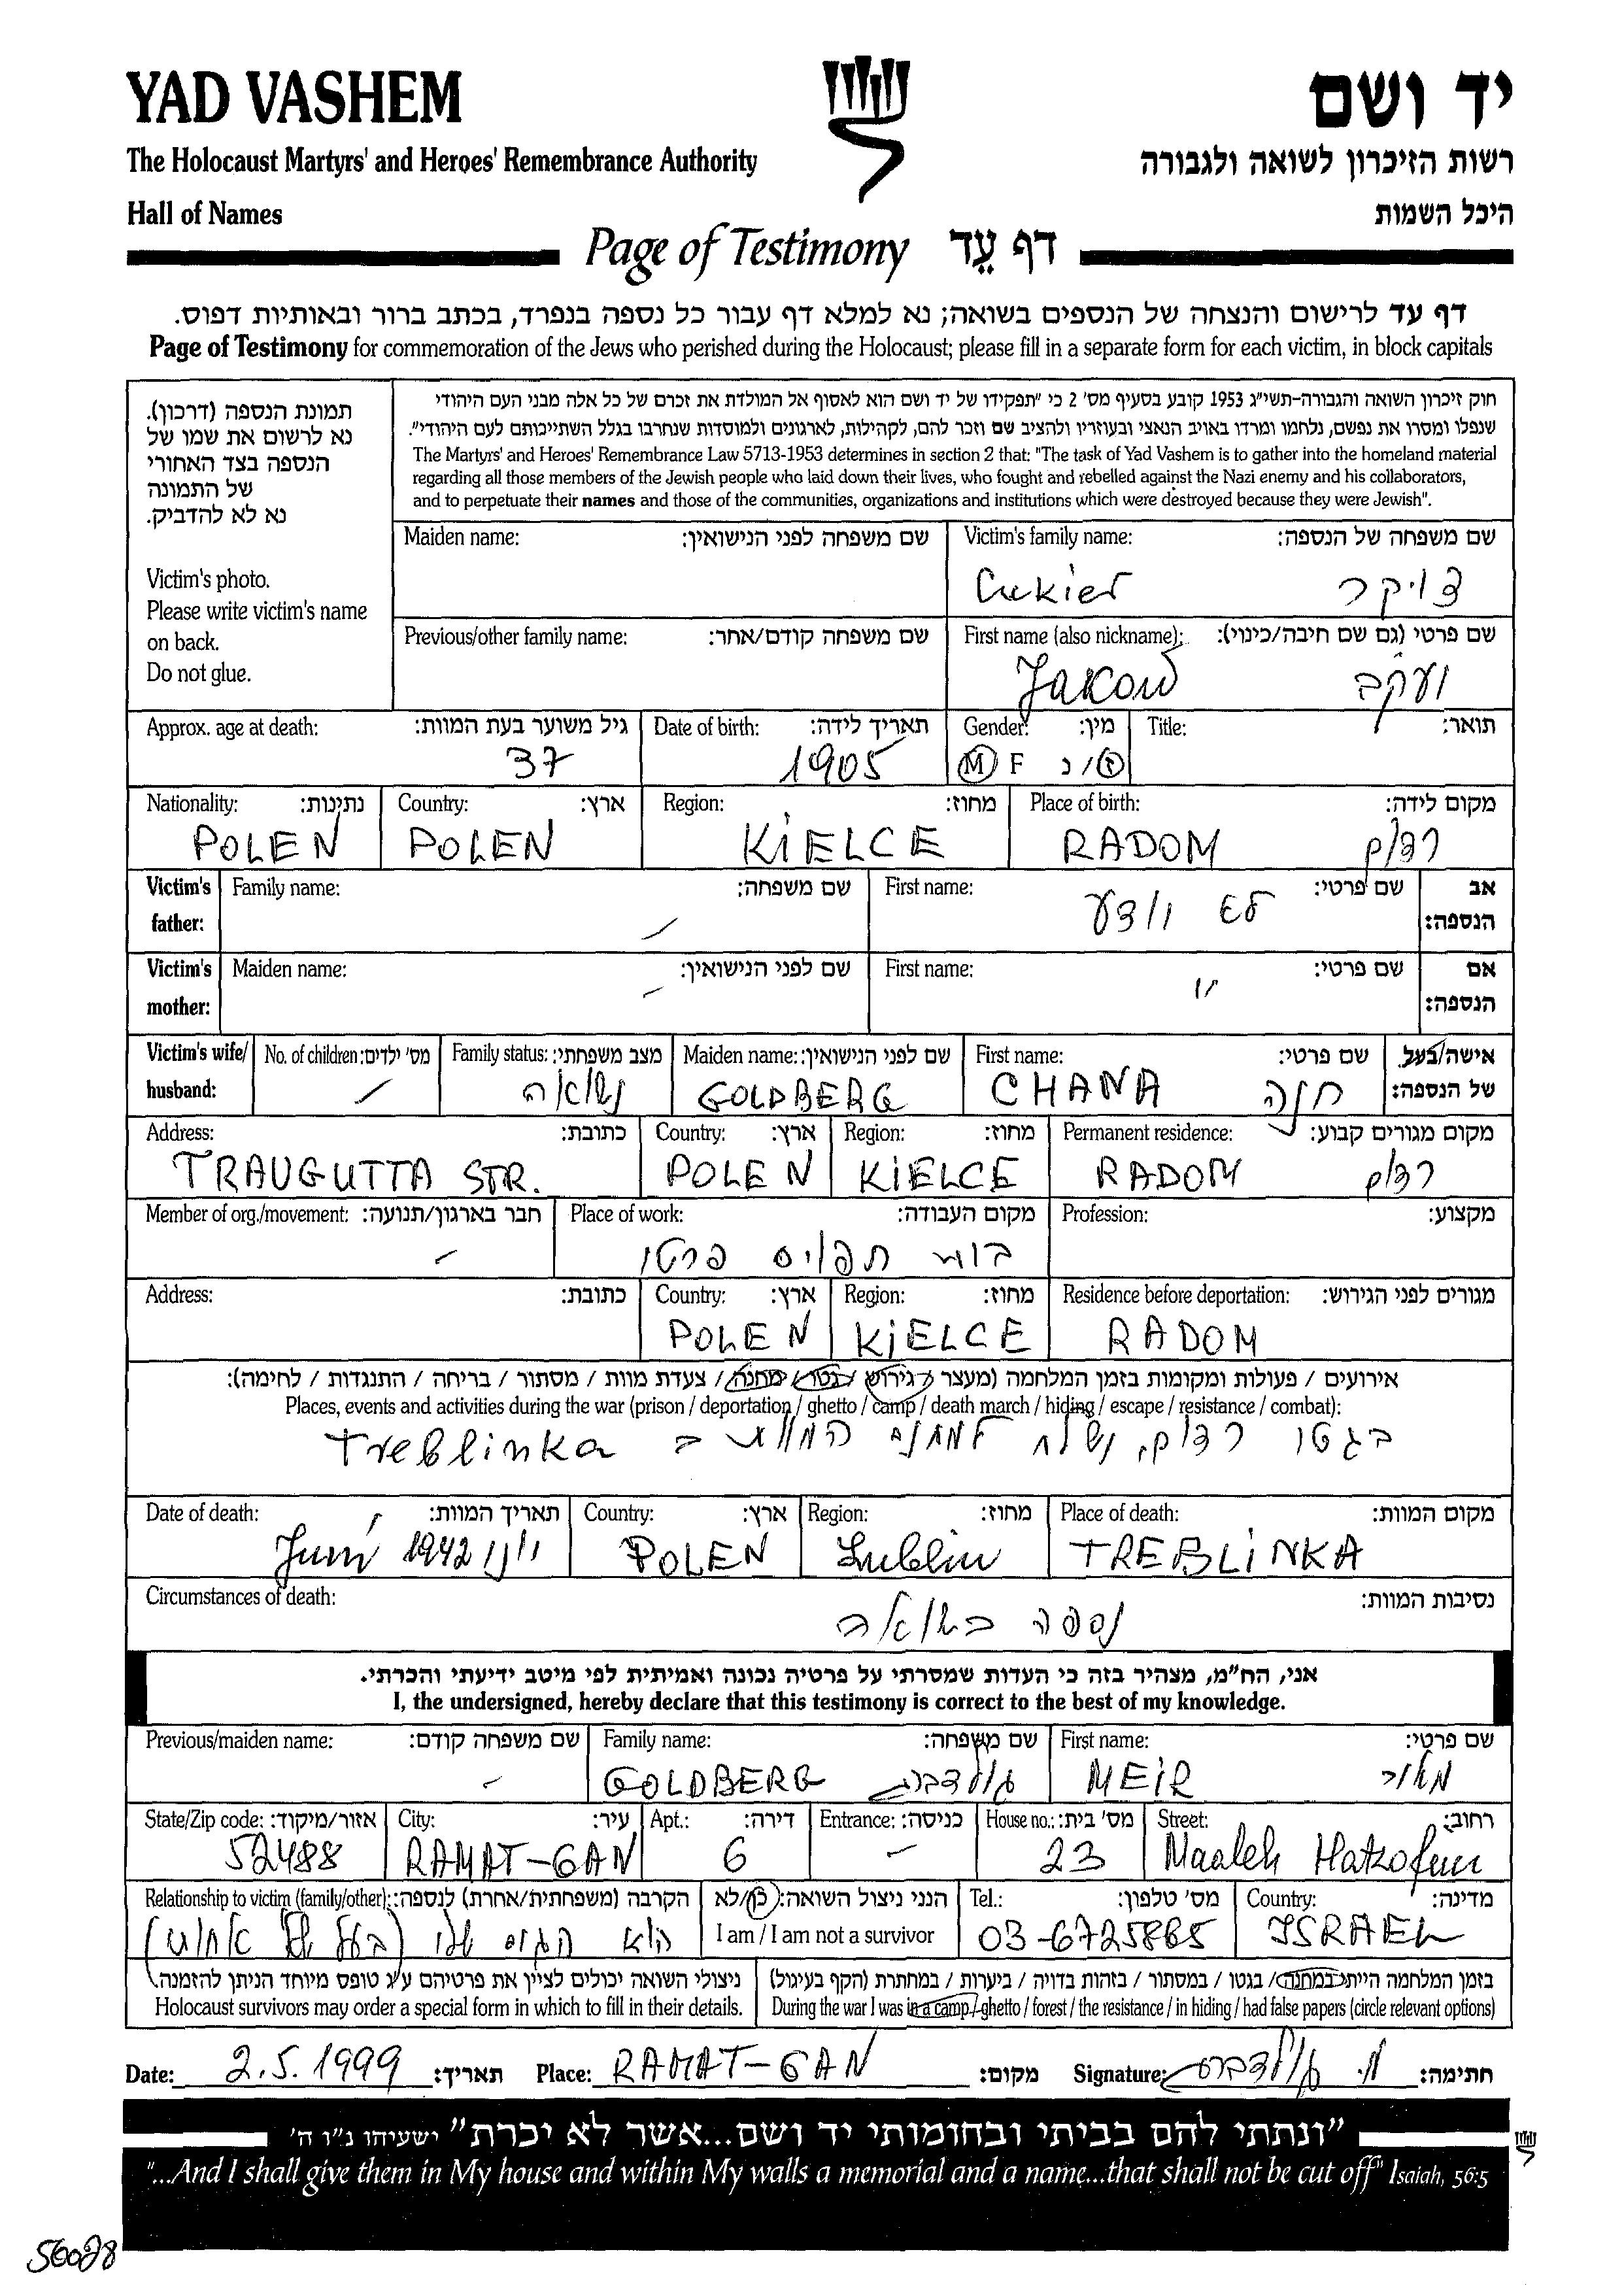 YAD VASHEM
יד ושם
The Holocaust Martyrs' and Heroes' Remembrance Authority
רשות הזיכרון לשואה ולגבורה
Hall of Names
היכל השמות
Page of Testimony דף עֵד
דף עד לרישום והנצחה של הנספים בשואה; נא למלא דף עבור כל נספה בנפרד, בכתב ברור ובאותיות דפוס.
Page of Testimony for commemoration of the Jews who perished during the Holocaust; please fill in a separate form for each victim, in block capitals
תמונת הנספה (דרכון).
נא לרשום את שמו של
הנספה בצד האחורי
של התמונה
נא לא להדביק.
Victim's photo.
Please write victim's name
on back.
Do not glue.
חוק זיכרון השואה והגבורה-תשי"ג 1953 קובע בסעיף מס' 2 כי "תפקידו של יד ושם הוא לאסוף אל המולדת את זכרם של כל אלה מבני העם היהודי
שנפלו ומסרו את נפשם, נלחמו ומרדו באויב הנאצי ובעוזריו ולהציב שם וזכר להם, לקהילות, לארגונים ולמוסדות שנחרבו בגלל השתייכותם לעם היהודי".
The Martyrs' and Heroes' Remembrance Law 5713-1953 determines in section 2 that: "The task of Yad Vashem is to gather into the homeland material
regarding all those members of the Jewish people who laid down their lives, who fought and rebelled against the Nazi enemy and his collaborators,
and to perpetuate their names and those of the communities, organizations and institutions which were destroyed because they were Jewish".
Maiden name: שם משפחה לפני הנישואין: Victim's family name: שם משפחה של הנספה:
Cukier צויקר
Previous/other family name: שם משפחה קודם/אחר: First name (also nickname): שם פרטי (גם שם חיבה/כינוי):
Jakow יעקב
Approx. age at death: גיל משוער בעת המוות: Date of birth: תאריך לידה: Gender: מין: Title: תואר:
37 1905 M F ז/נ
Nationality: נתינות: Country: ארץ: Region: מחוז: Place of birth: מקום לידה:
POLEN POLEN KIELCE RADOM רדום
Victim's father: Family name: שם משפחה: First name: שם פרטי: אב הנספה:
לא יודע
Victim's mother: Maiden name: שם לפני הנישואין: First name: שם פרטי: אם הנספה:
"
Victim's wife/ husband: No. of children: מס' ילדים: Family status: מצב משפחתי: Maiden name: שם לפני הנישואין: First name: שם פרטי: אישה/בעל של הנספה:
נשואה GOLDBERG CHANA חנה
Address: כתובת: Country: ארץ: Region: מחוז: Permanent residence: מקום מגורים קבוע:
TRAUGUTTA STR. POLEN KIELCE RADOM רדום
Member of org./movement: חבר בארגון/תנועה: Place of work: מקום העבודה: Profession: מקצוע:
פרטי
Address: כתובת: Country: ארץ: Region: מחוז: Residence before deportation: מגורים לפני הגירוש:
POLEN KIELCE RADOM
אירועים / פעולות ומקומות בזמן המלחמה (מעצר / גירוש / גטו / מחנה / צעדת מוות / מסתור / בריחה / התנגדות / לחימה):
Places, events and activities during the war (prison / deportation / ghetto / camp / death march / hiding / escape / resistance / combat):
בגטו רדום, נשלח למחנה המוות ב Treblinka
Date of death: תאריך המוות: Country: ארץ: Region: מחוז: Place of death: מקום המוות:
Juni 1942 יוני POLEN Lublin TREBLINKA
Circumstances of death: נסיבות המוות:
נספה בשואה
אני, הח"מ, מצהיר בזה כי העדות שמסרתי על פרטיה נכונה ואמיתית לפי מיטב ידיעתי והכרתי.
I, the undersigned, hereby declare that this testimony is correct to the best of my knowledge.
Previous/maiden name: שם משפחה קודם: Family name: שם משפחה: First name: שם פרטי:
GOLDBERG גולדברג MEIR מאיר
State/Zip code: אזור/מיקוד: City: עיר: Apt.: דירה: Entrance: כניסה: House no.: מס' בית: Street: רחוב:
52488 RAMAT-GAN 6 - 23 Maaleh Hatzofim
Relationship to victim (family/other): הקרבה (משפחתית/אחרת) לנספה: הנני ניצול השואה: כן/לא Tel.: מס' טלפון: Country: מדינה:
הוא הגיס שלי (בעל של אחותי) I am / I am not a survivor 03-6725865 ISRAEL
ניצולי השואה יכולים לציין את פרטיהם ע"ג טופס מיוחד הניתן להזמנה. בזמן המלחמה הייתי במחנה / בגטו / במסתור / בזהות בדויה / ביערות / במחתרת (הקף בעיגול)
Holocaust survivors may order a special form in which to fill in their details. During the war I was in a camp / ghetto / forest / the resistance / in hiding / had false papers (circle relevant options)
Date: 2.5.1999 תאריך: Place: RAMAT-GAN מקום: Signature: מ. גולדברג חתימה:
"ונתתי להם בביתי ובחומותי יד ושם...אשר לא יכרת" ישעיהו נ"ו ה'
"...And I shall give them in My house and within My walls a memorial and a name...that shall not be cut off" Isaiah, 56:5